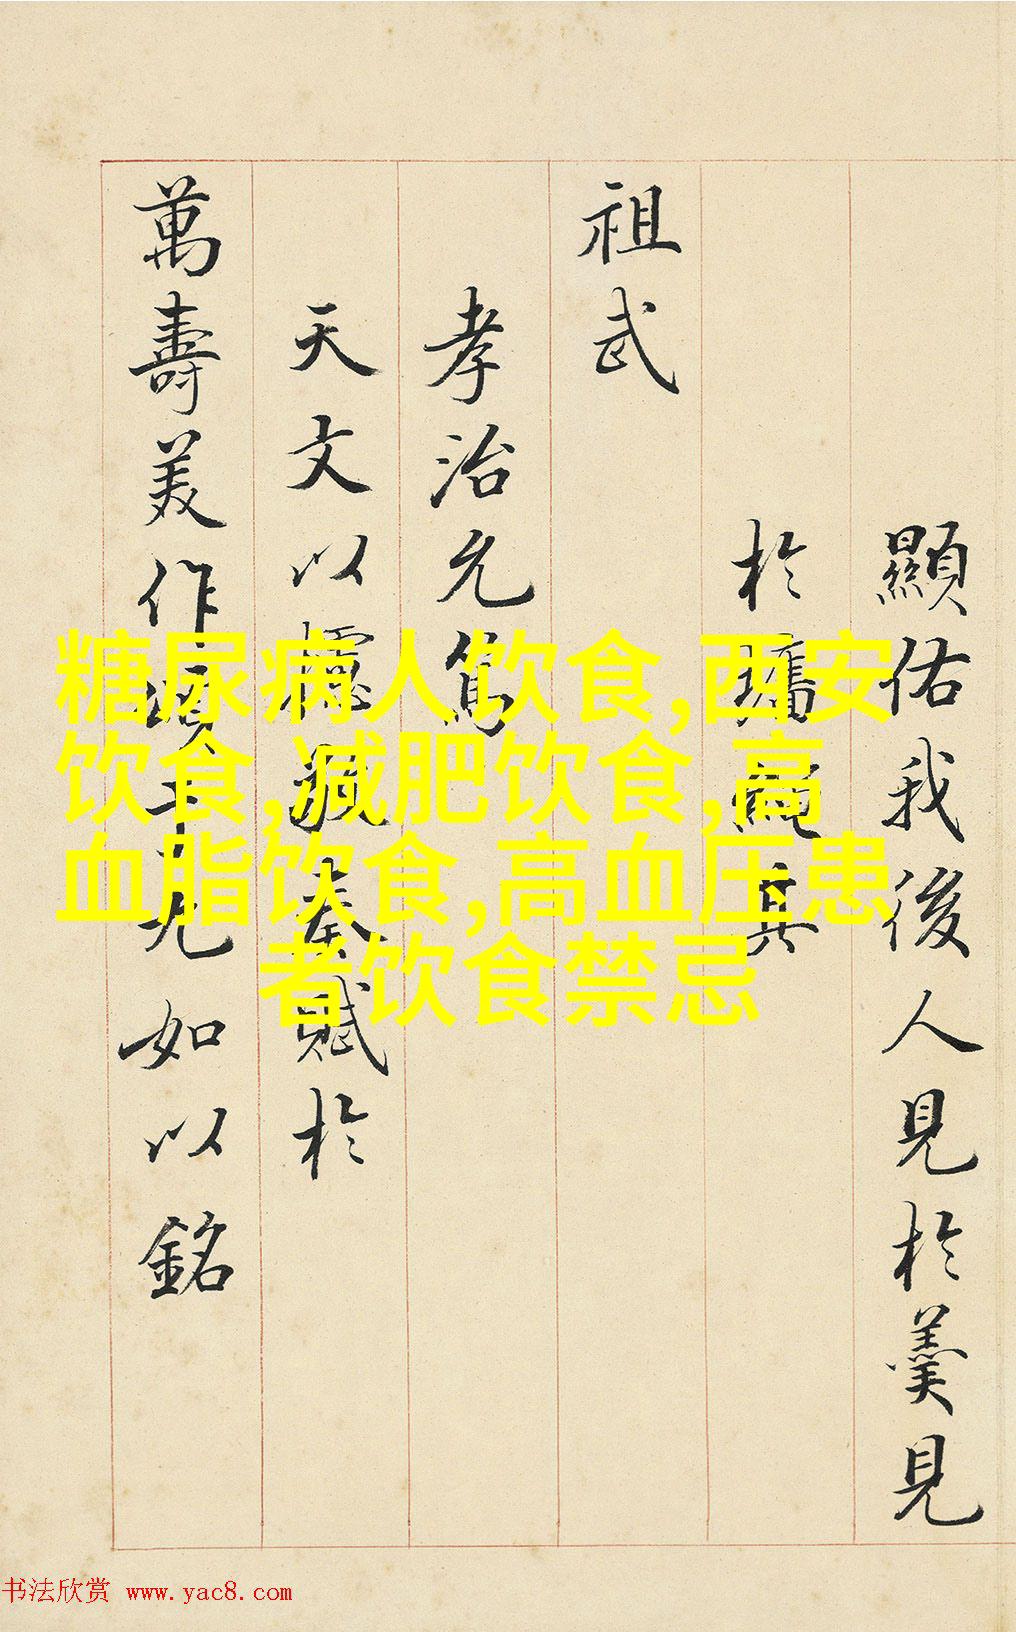 顯佑我後人見於羹見
於墻繩其
祖武
孝治允篤
天文以攄飙奏賦於
萬壽美作頌十九如以銘
糖尿病人饮食,西安
饮食,减肥饮食,高
血脂饮食,高血压患
者饮食禁忌
书法欣赏 www.yac8.com